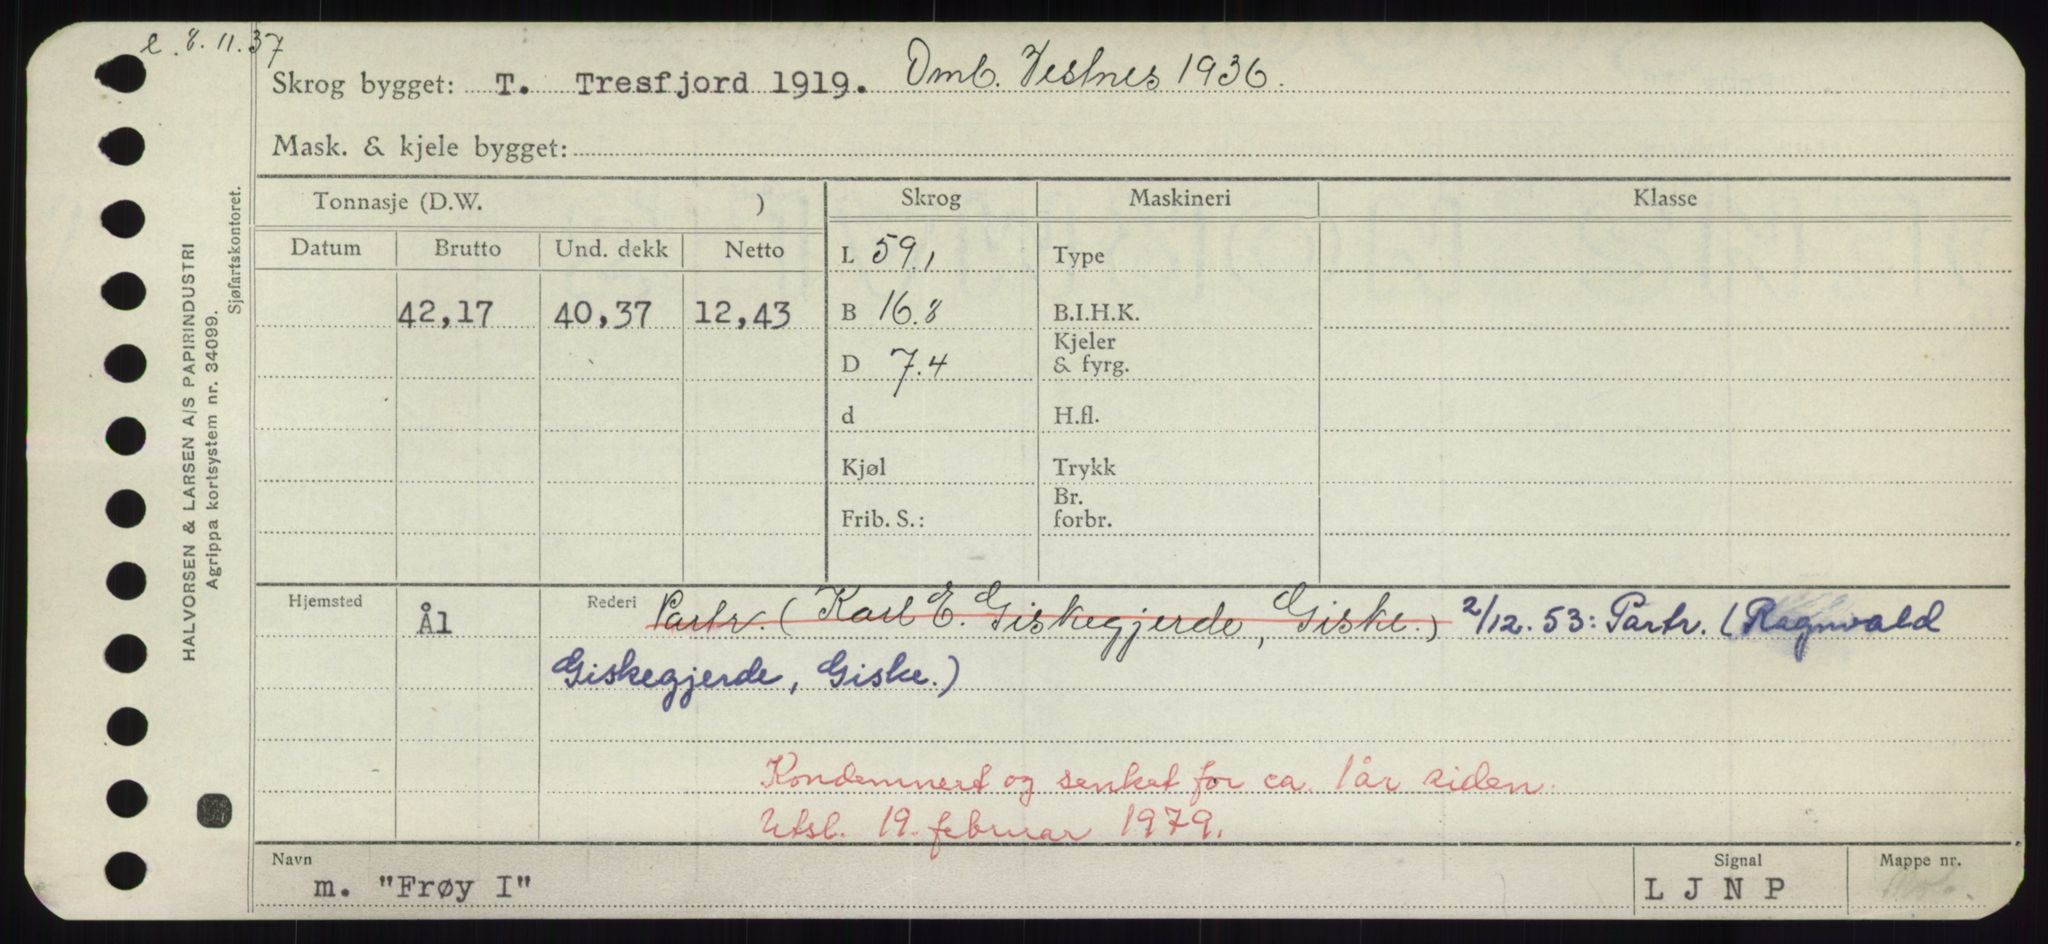 e. 8.11.37
Skrog bygget: T. Tresfjord 1919. Omb. Vestnes 1936.
Mask. & kjele bygget:
Tonnasje (D.W. ) Skrog Maskineri Klasse
Datum Brutto Und. dekk Netto L 59,1 Type
42,17 40,37 12,43 B 16.8 B.I.H.K.
Kjeler
D 7.4 & fyrg.
d H.fl.
Kjøl Trykk
Br.
Frib. S.: forbr.
Hjemsted Ål Rederi Partr. (Karl E. Giskegjerde, Giske.) 2/12.53: Partr. (Ragnvald
Giskegjerde, Giske.)
Kondemnert og senket for ca. 1 år siden.
Utsl. 19. februar 1979.
Navn Signal Mappe nr.
m. "Frøy I" L J N P
HALVORSEN & LARSEN A/S PAPIRINDUSTRI
Agrippa kortsystem nr. 34099.
Sjøfartskontoret.